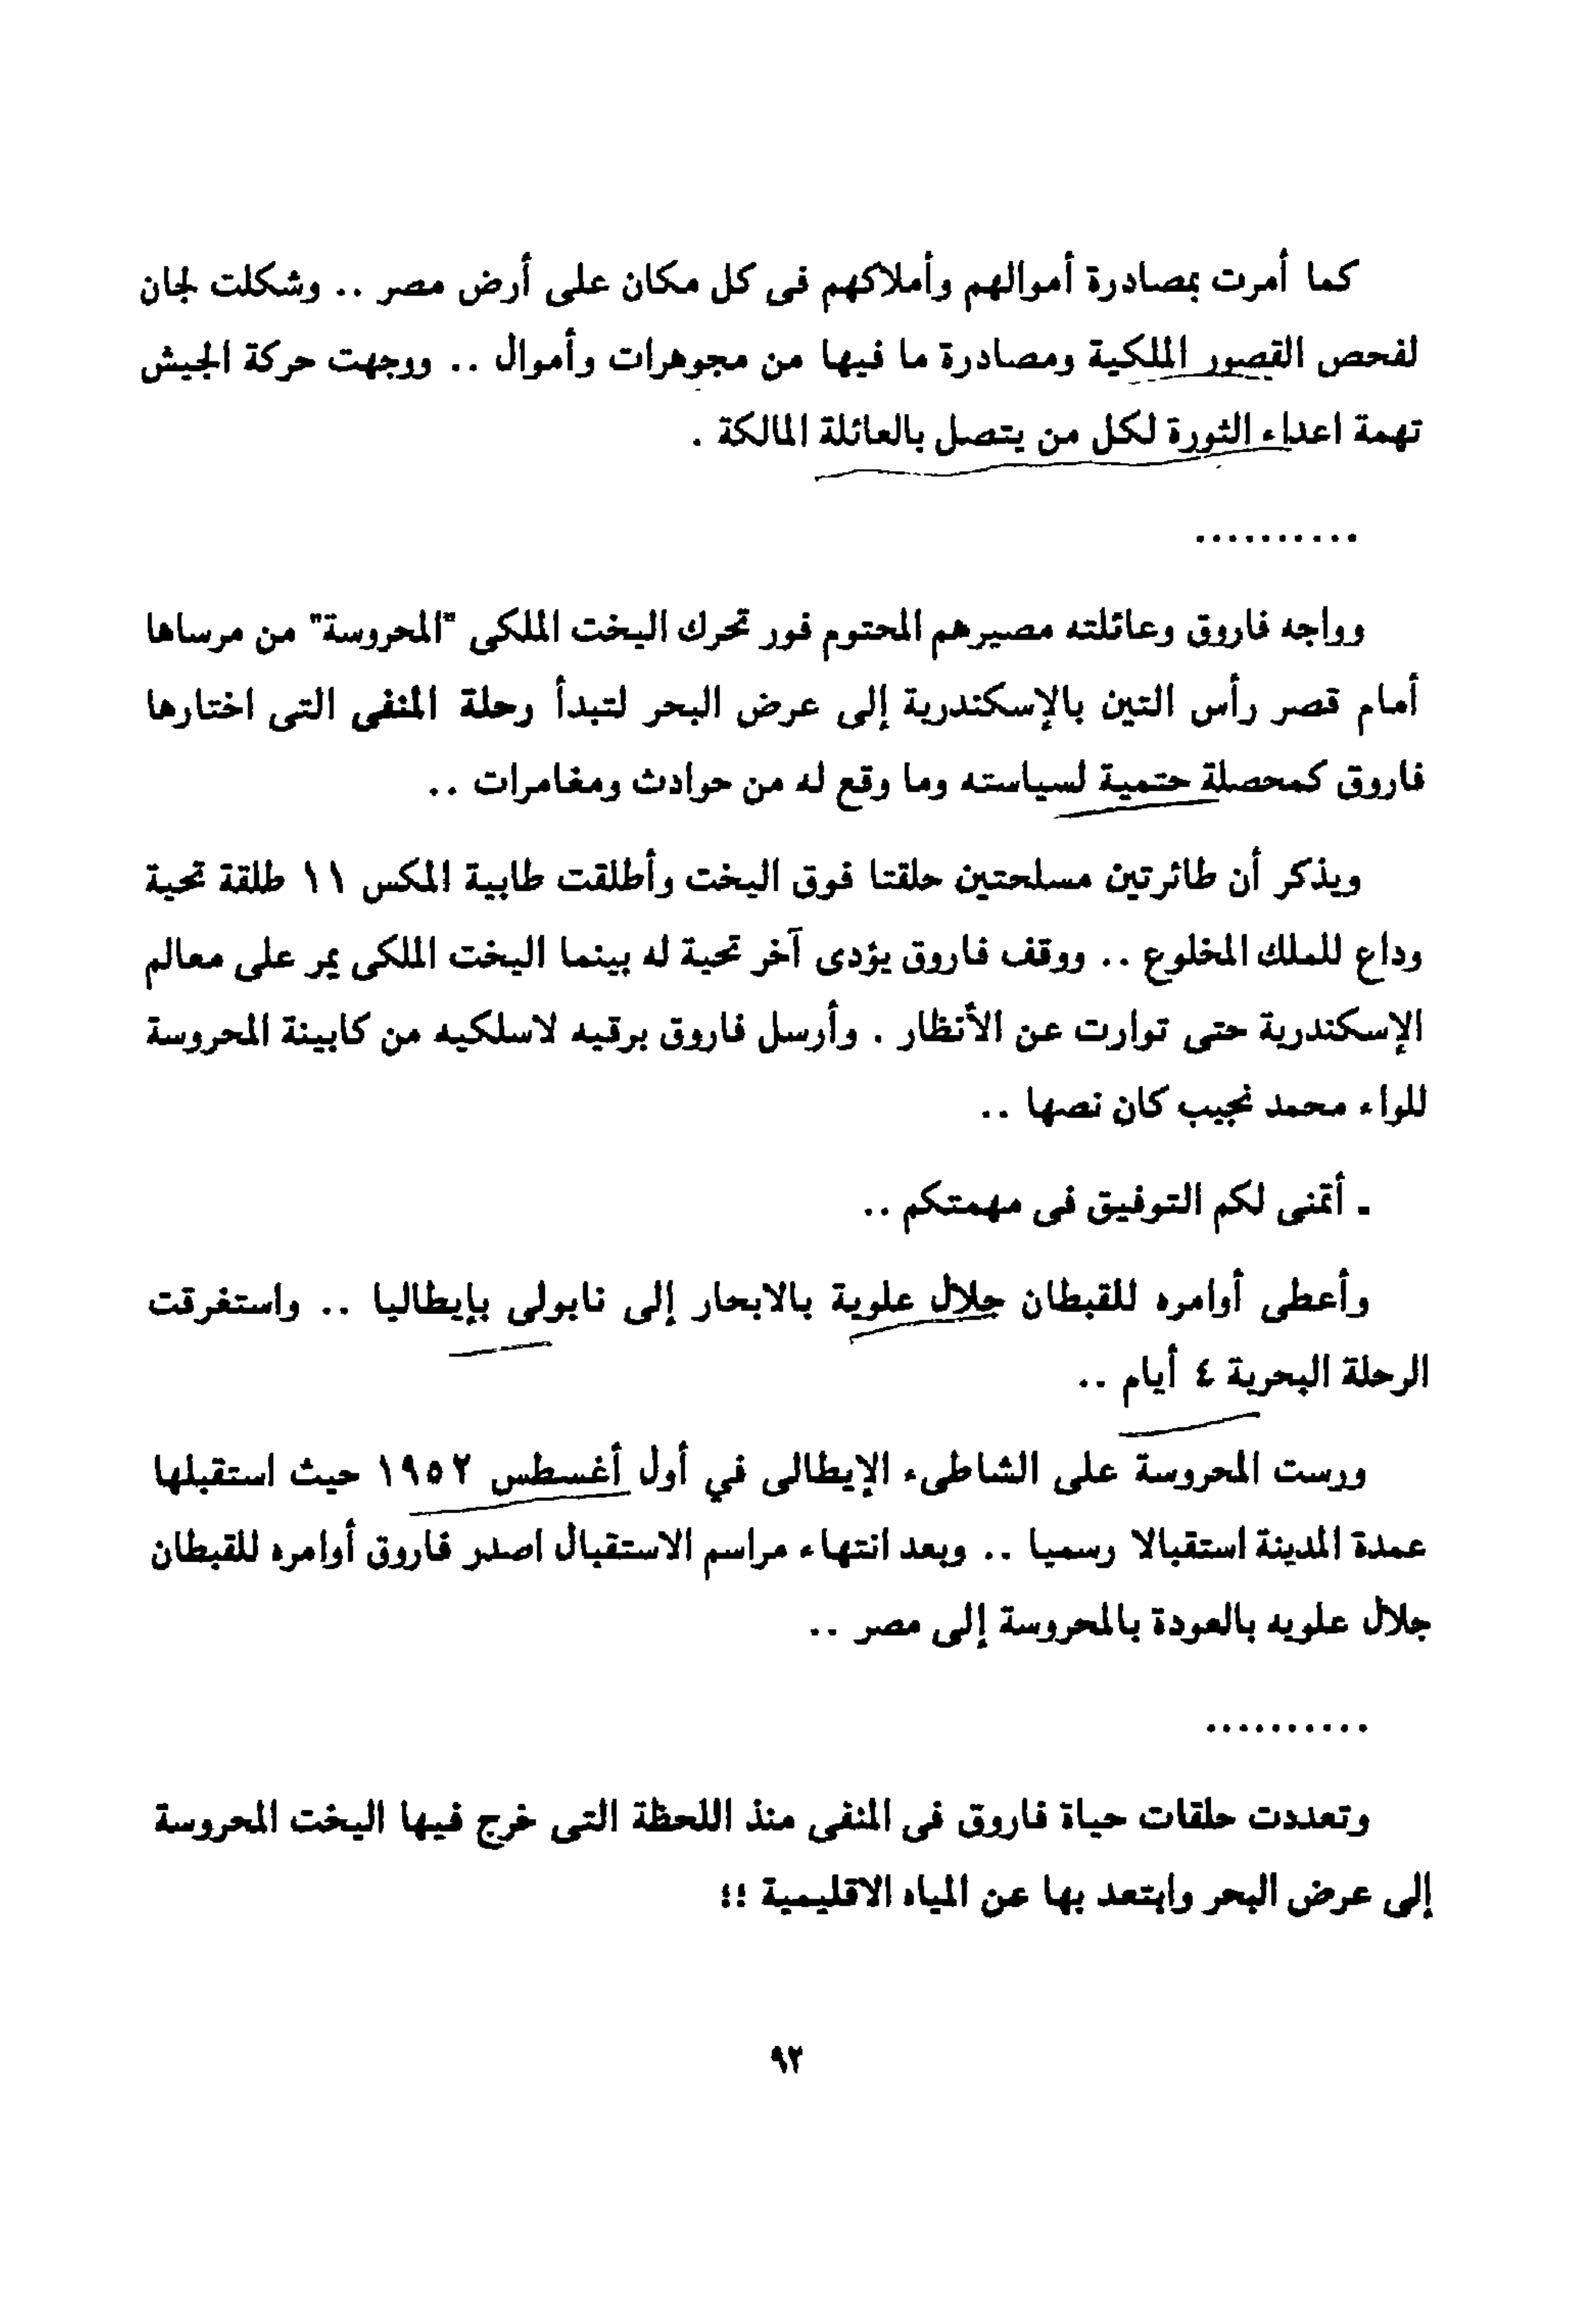 كما أمرت بمصادرة أموالهم وأملاكهم فى كل مكان على أرض مصر .. وشكلت لجان
لفحص القصور الملكية ومصادرة ما فيها من مجوهرات وأموال .. ووجهت حركة الجيش
تهمة اعداء الثورة لكل من يتصل بالعائلة المالكة .
..........
وواجه فاروق وعائلته مصيرهم المحتوم فور تحرك اليخت الملكى "المحروسة" من مرساها
أمام قصر رأس التين بالإسكندرية إلى عرض البحر لتبدأ رحلة المنفى التى اختارها
فاروق كمحصلة حتمية لسياسته وما وقع له من حوادث ومغامرات ..
ويذكر أن طائرتين مسلحتين حلقتا فوق اليخت وأطلقت طابية المكس ١١ طلقة تحية
وداع للملك المخلوع .. ووقف فاروق يؤدى آخر تحية له بينما اليخت الملكى يمر على معالم
الإسكندرية حتى توارت عن الأنظار . وأرسل فاروق برقيه لاسلكيه من كابينة المحروسة
للواء محمد نجيب كان نصها ..
- أتمنى لكم التوفيق فى مهمتكم ..
وأعطى أوامره للقبطان جلال علوية بالابحار إلى نابولى بإيطاليا .. واستغرقت
الرحلة البحرية ٤ أيام ..
ورست المحروسة على الشاطىء الإيطالى في أول أغسطس ١٩٥٢ حيث استقبلها
عمدة المدينة استقبالا رسميا .. وبعد انتهاء مراسم الاستقبال اصدر فاروق أوامره للقبطان
جلال علويه بالعودة بالمحروسة إلى مصر ..
..........
وتعددت حلقات حياة فاروق فى المنفى منذ اللحظة التى خرج فيها اليخت المحروسة
إلى عرض البحر وابتعد بها عن المياه الاقليمية !!
٩٢